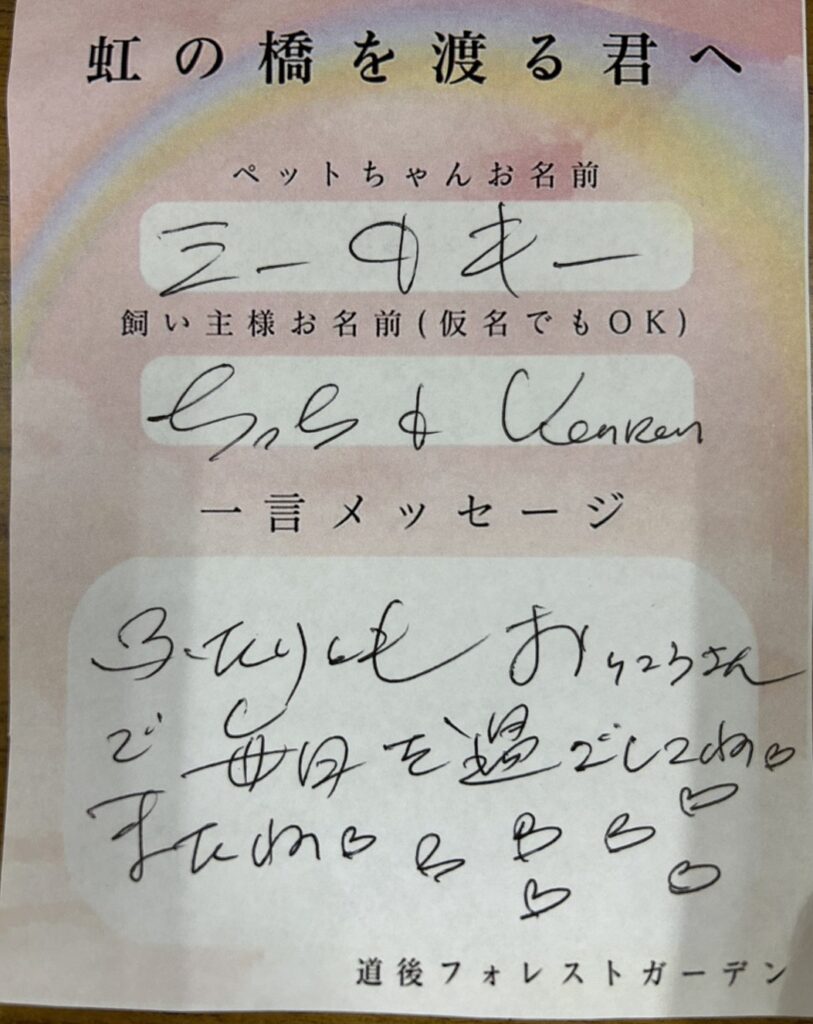 虹の橋を渡る君へ
ペットちゃんお名前
ミー キー
飼い主様お名前(仮名でもOK)
ちっち Kenken
一言メッセージ
ふたりとも おりこうさん
で 毎日を過ごしてね♡
またね♡ ♡ ♡ ♡ ♡
♡ ♡
道後フォレストガーデン